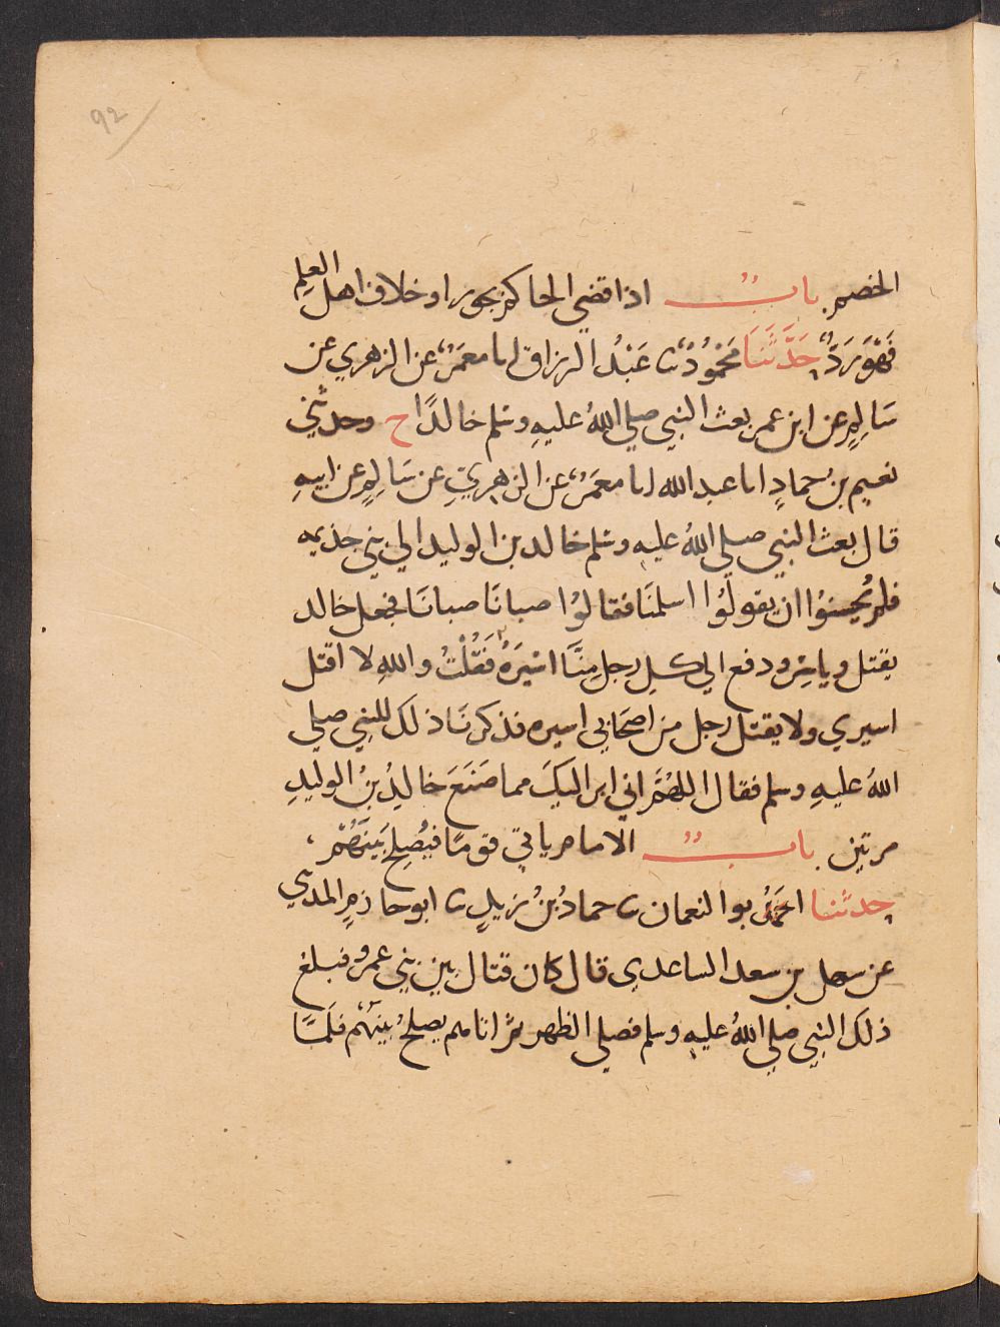 92
الخصم باب اذا قضي الحاكم بجور او خلاف اهل العلم
فَهْوَ رَدٌّ حَدَّثَنَا مَحْمُوْدٌ ثنا عَبْدُ الرزاق انا معمَرٌ عن الزهري عن
سَالِمٍ عن ابن عمر بعث النبي صلي اللهُ عليهِ وسلم خالدًا ح وحدثني
نعيم بن حمادٍ انا عبد الله انا معمَرٌ عن الزهريِّ عن سَالِمٍ عن ابيهِ
قال بعث النبي صلي اللهُ عليهِ وسلم خالد بن الوليد الي بني جذيمه
فلم يُحْسِنُوْا ان يقولُوْا اسلمنَا فقالُوْا صبانَا صبانَا فجعل خالد
يقتل وياسِر ودفع الي كل رجل مِنَّا اسْيَرَهُ فَقُلْتُ واللهِ لا اقتل
اسيري ولا يقتل رجل من اصحَابي اسيره فذكرنَا ذلك للنبي صلي
اللهُ عليهِ وسلم فقال اللهُمَّ اني ابرا اليكَ مما صَنَعَ خالِدُ بنُ الوليدِ
مرتين باب الامام ياتي قومًا فيُصْلِح بَيْنَهُمْ
حدثنا ابو النعمان ثنا حمادُ بنُ زيدٍ ثنا ابو حازمٍ المديني
عن سهل بن سعد الساعدي قال كان قتال بين بني عمرو فبلغ
ذلك النبي صلي اللهُ عليهِ وسلم فصلي الظهر ثم اتاهم يصلحُ بينهُم فلَمَّا